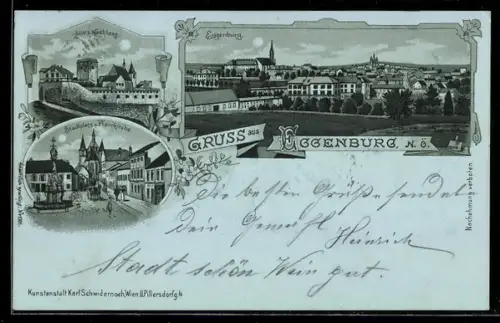 Eggenburg
Stadtplatz u. Pfarrkirche
GRUSS aus EGGENBURG, N. Ö.
Die besten Grüße sendet
Dein Heinrich
Stadt schön Wein gut.
Nachahmung verboten.
Kunstanstalt Karl Schwidernoch, Wien. II. Pillersdorfg. 4